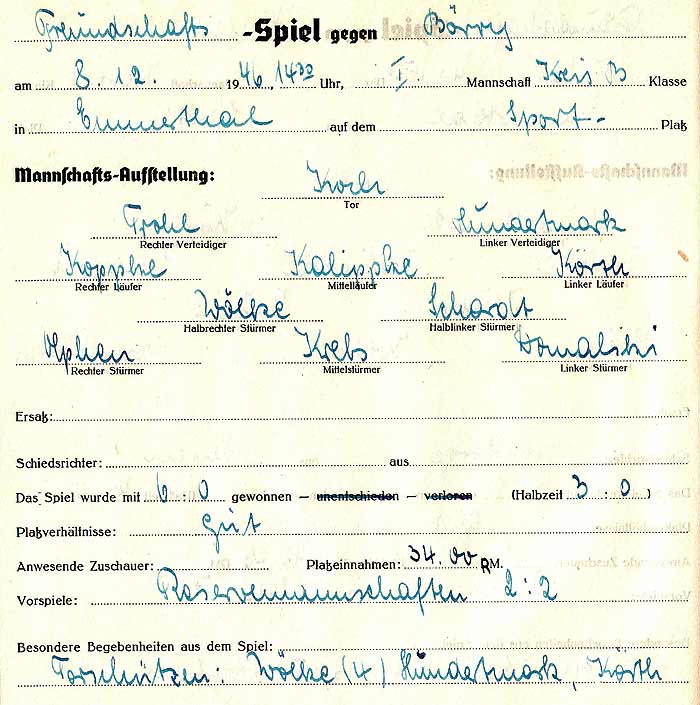 Freundschafts -Spiel gegen Börry
am 8. 12. 1946, 14³⁰ Uhr, I. Mannschaft Kreis B Klasse
in Emmerthal auf dem Sport- Platz
Mannschafts-Aufstellung:
Koch
Tor
Hundertmark
Rechter Verteidiger Linker Verteidiger
Koppke Kalippke Körth
Rechter Läufer Mittelläufer Linker Läufer
Wölke Schardt
Halbrechter Stürmer Halblinker Stürmer
Krebs Domalski
Rechter Stürmer Mittelstürmer Linker Stürmer
Ersatz:
Schiedsrichter: aus
Das Spiel wurde mit 6:0 gewonnen – unentschieden – verloren (Halbzeit 3:0)
Platzverhältnisse: gut
Anwesende Zuschauer: Platzeinnahmen: 34.00 RM.
Vorspiele: Reservemannschaften 2:2
Besondere Begebenheiten aus dem Spiel:
Torschützen: Wölke (4) Hundertmark, Körth